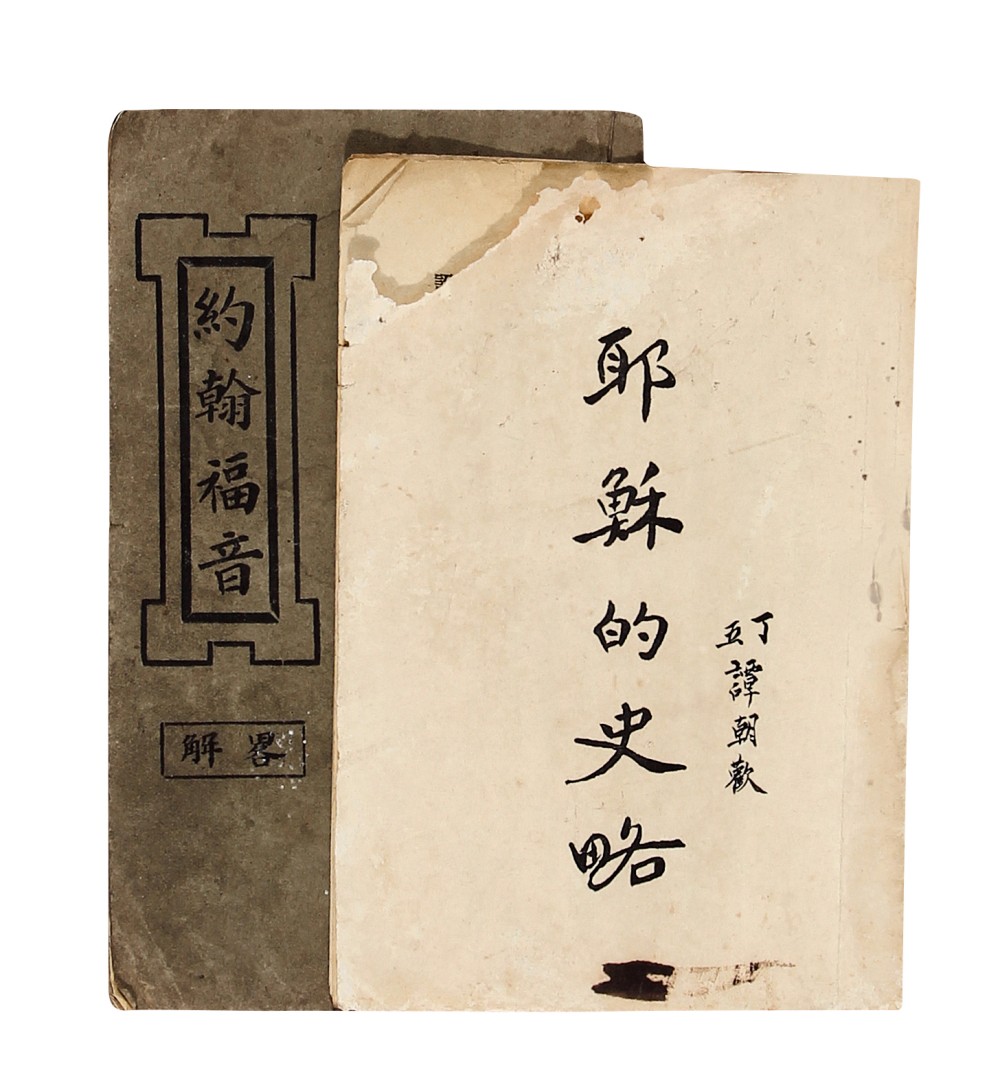 約翰福音
畧解
耶穌的史略
丁五
譚朝歡